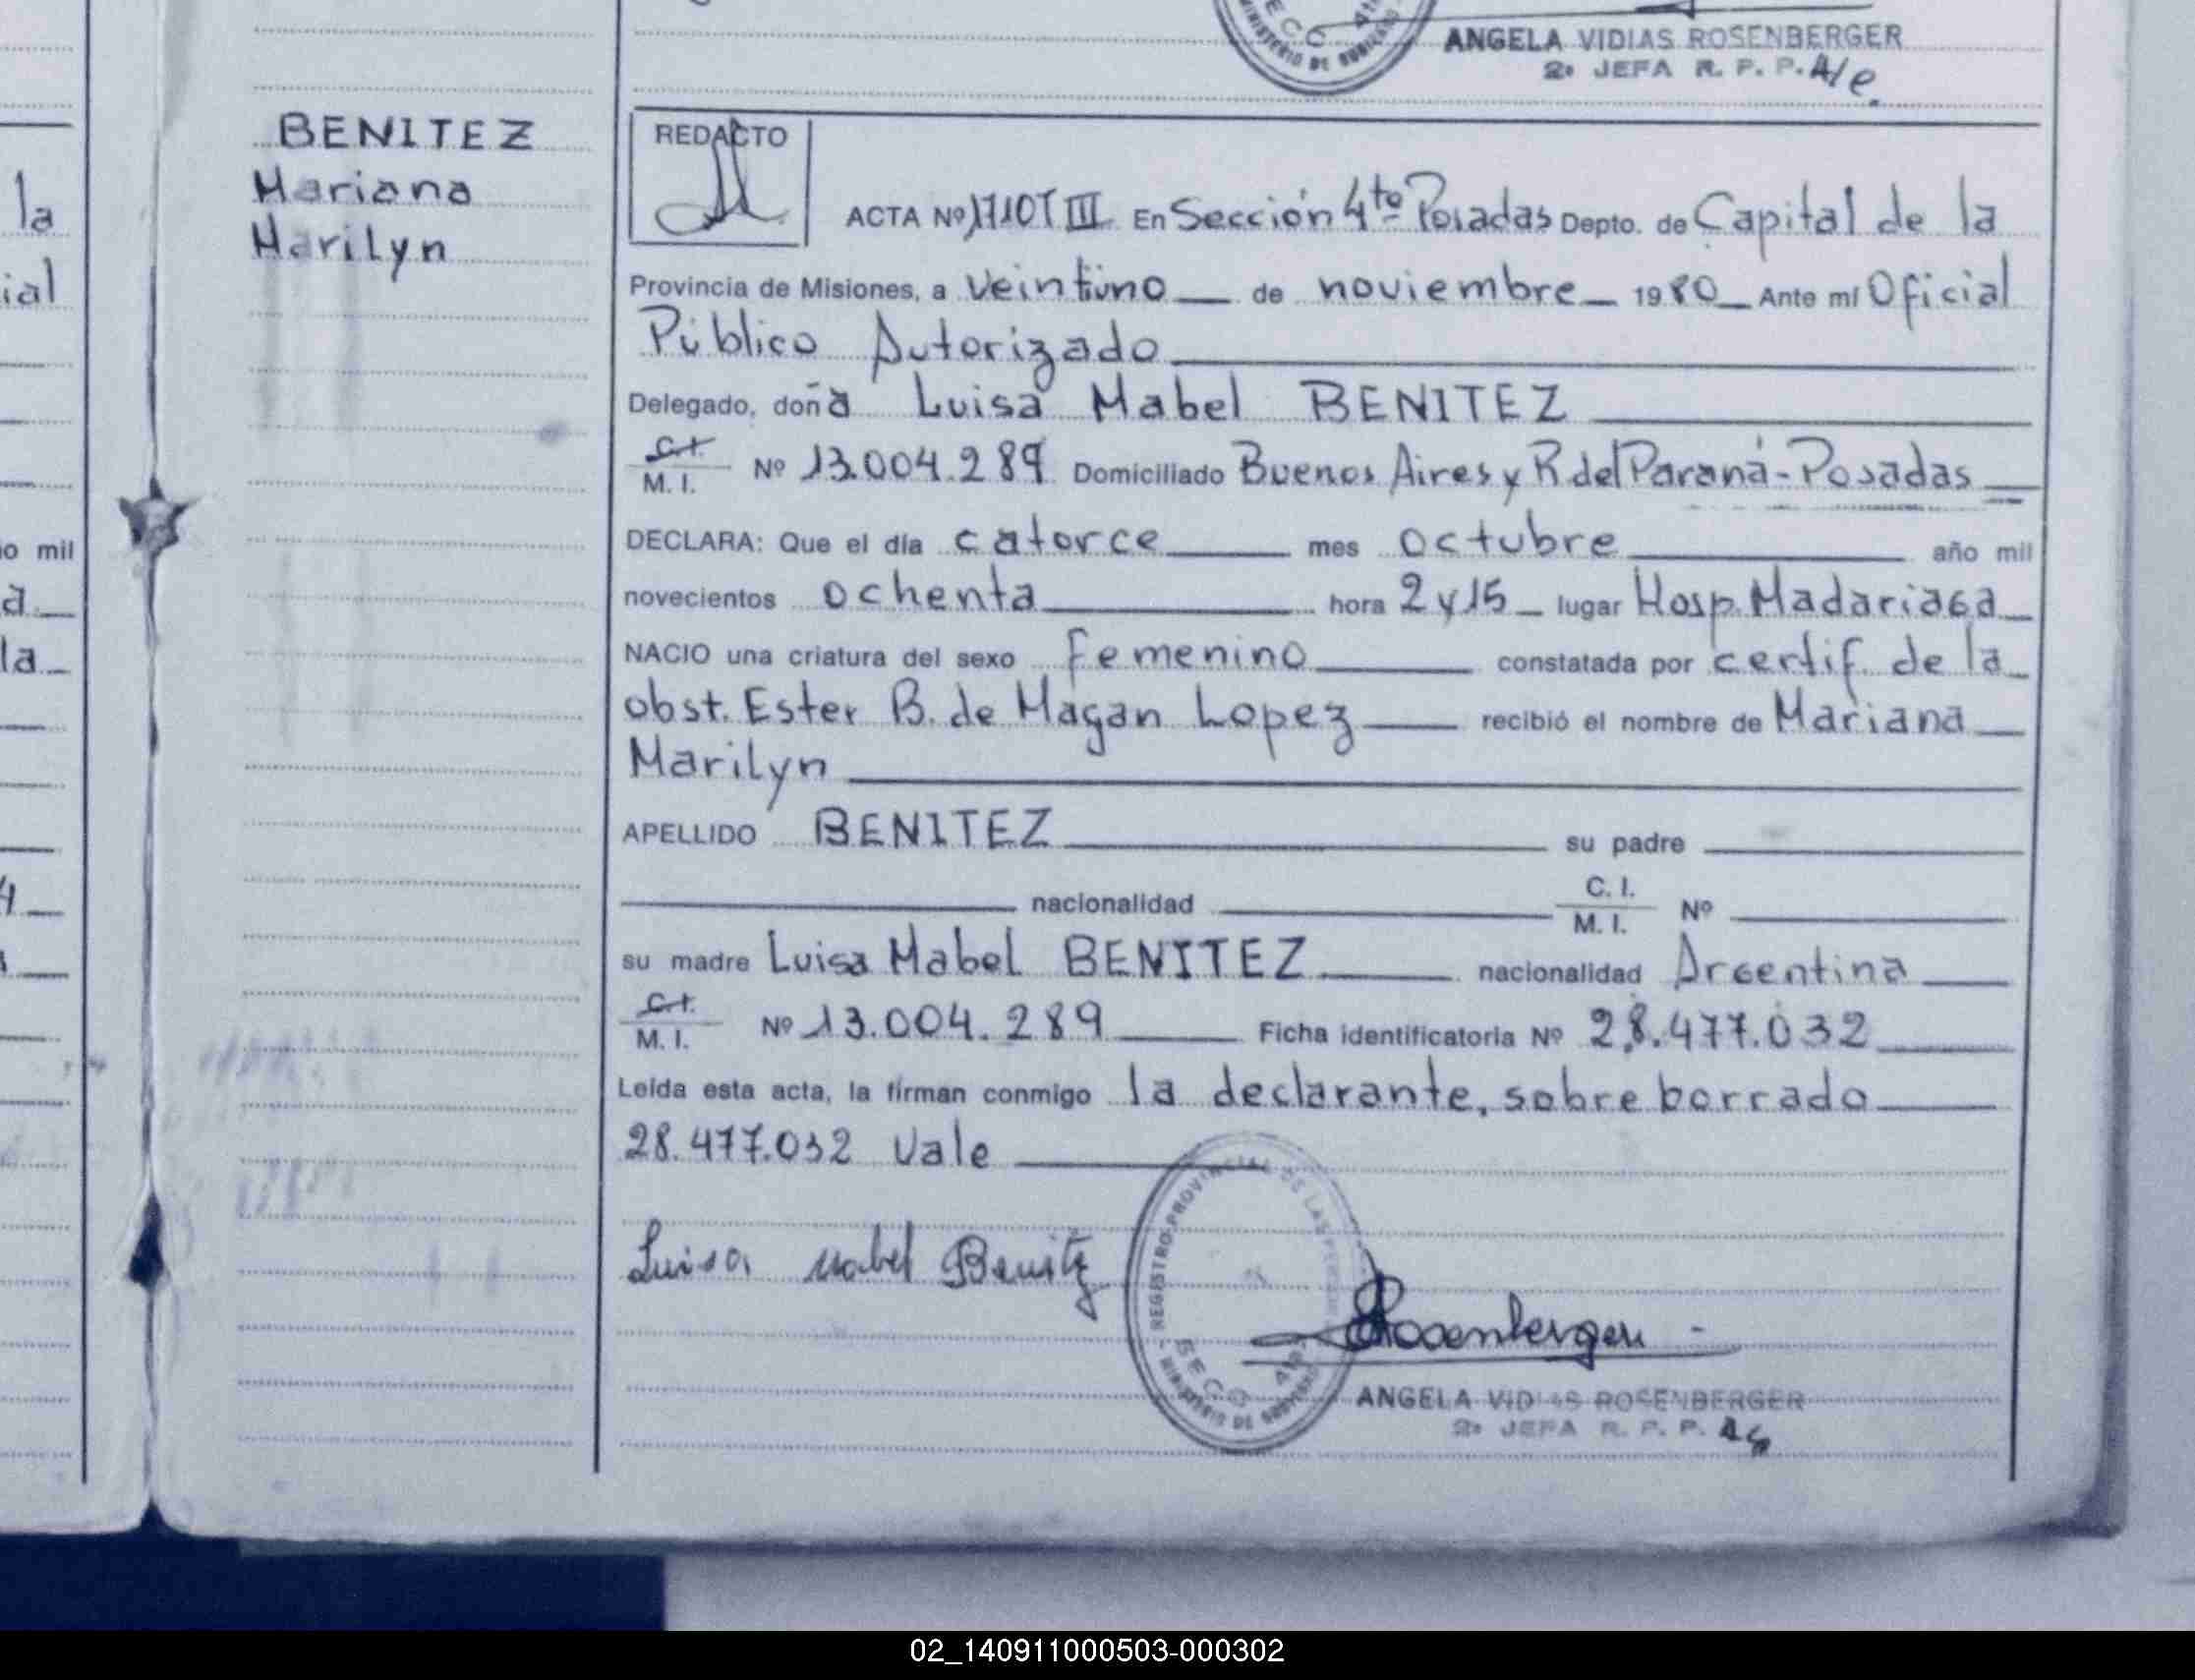 ANGELA VIDIAS ROSENBERGER
2º JEFA R. P. P. A/c.
BENITEZ
Mariana
Marilyn
REDACTO
ACTA Nº 1710 T III En Sección 4to Posadas Depto. de Capital de la
Provincia de Misiones, a veintiuno de noviembre 1980 Ante mí Oficial
Público Autorizado
Delegado, doña Luisa Mabel BENITEZ
C.I. / M. I. Nº 13.004.289 Domiciliado Buenos Aires y R del Paraná - Posadas
DECLARA: Que el día catorce mes octubre año mil
novecientos ochenta hora 2 y 15 lugar Hosp. Madariaga
NACIO una criatura del sexo femenino constatada por certif. de la
obst. Ester B. de Magan Lopez recibió el nombre de Mariana
Marilyn
APELLIDO BENITEZ su padre
nacionalidad C. I. / M. I. Nº
su madre Luisa Mabel BENITEZ nacionalidad Argentina
C.I. / M. I. Nº 13.004.289 Ficha identificatoria Nº 28.477.032
Leída esta acta, la firman conmigo la declarante, sobre borrado
28.477.032 Vale
Luisa Mabel Benitez
REGISTRO PROVINCIAL DE LAS
SECC 4to
Rosenberger
ANGELA VIDIAS ROSENBERGER
2º JEFA R. P. P.
02_140911000503-000302